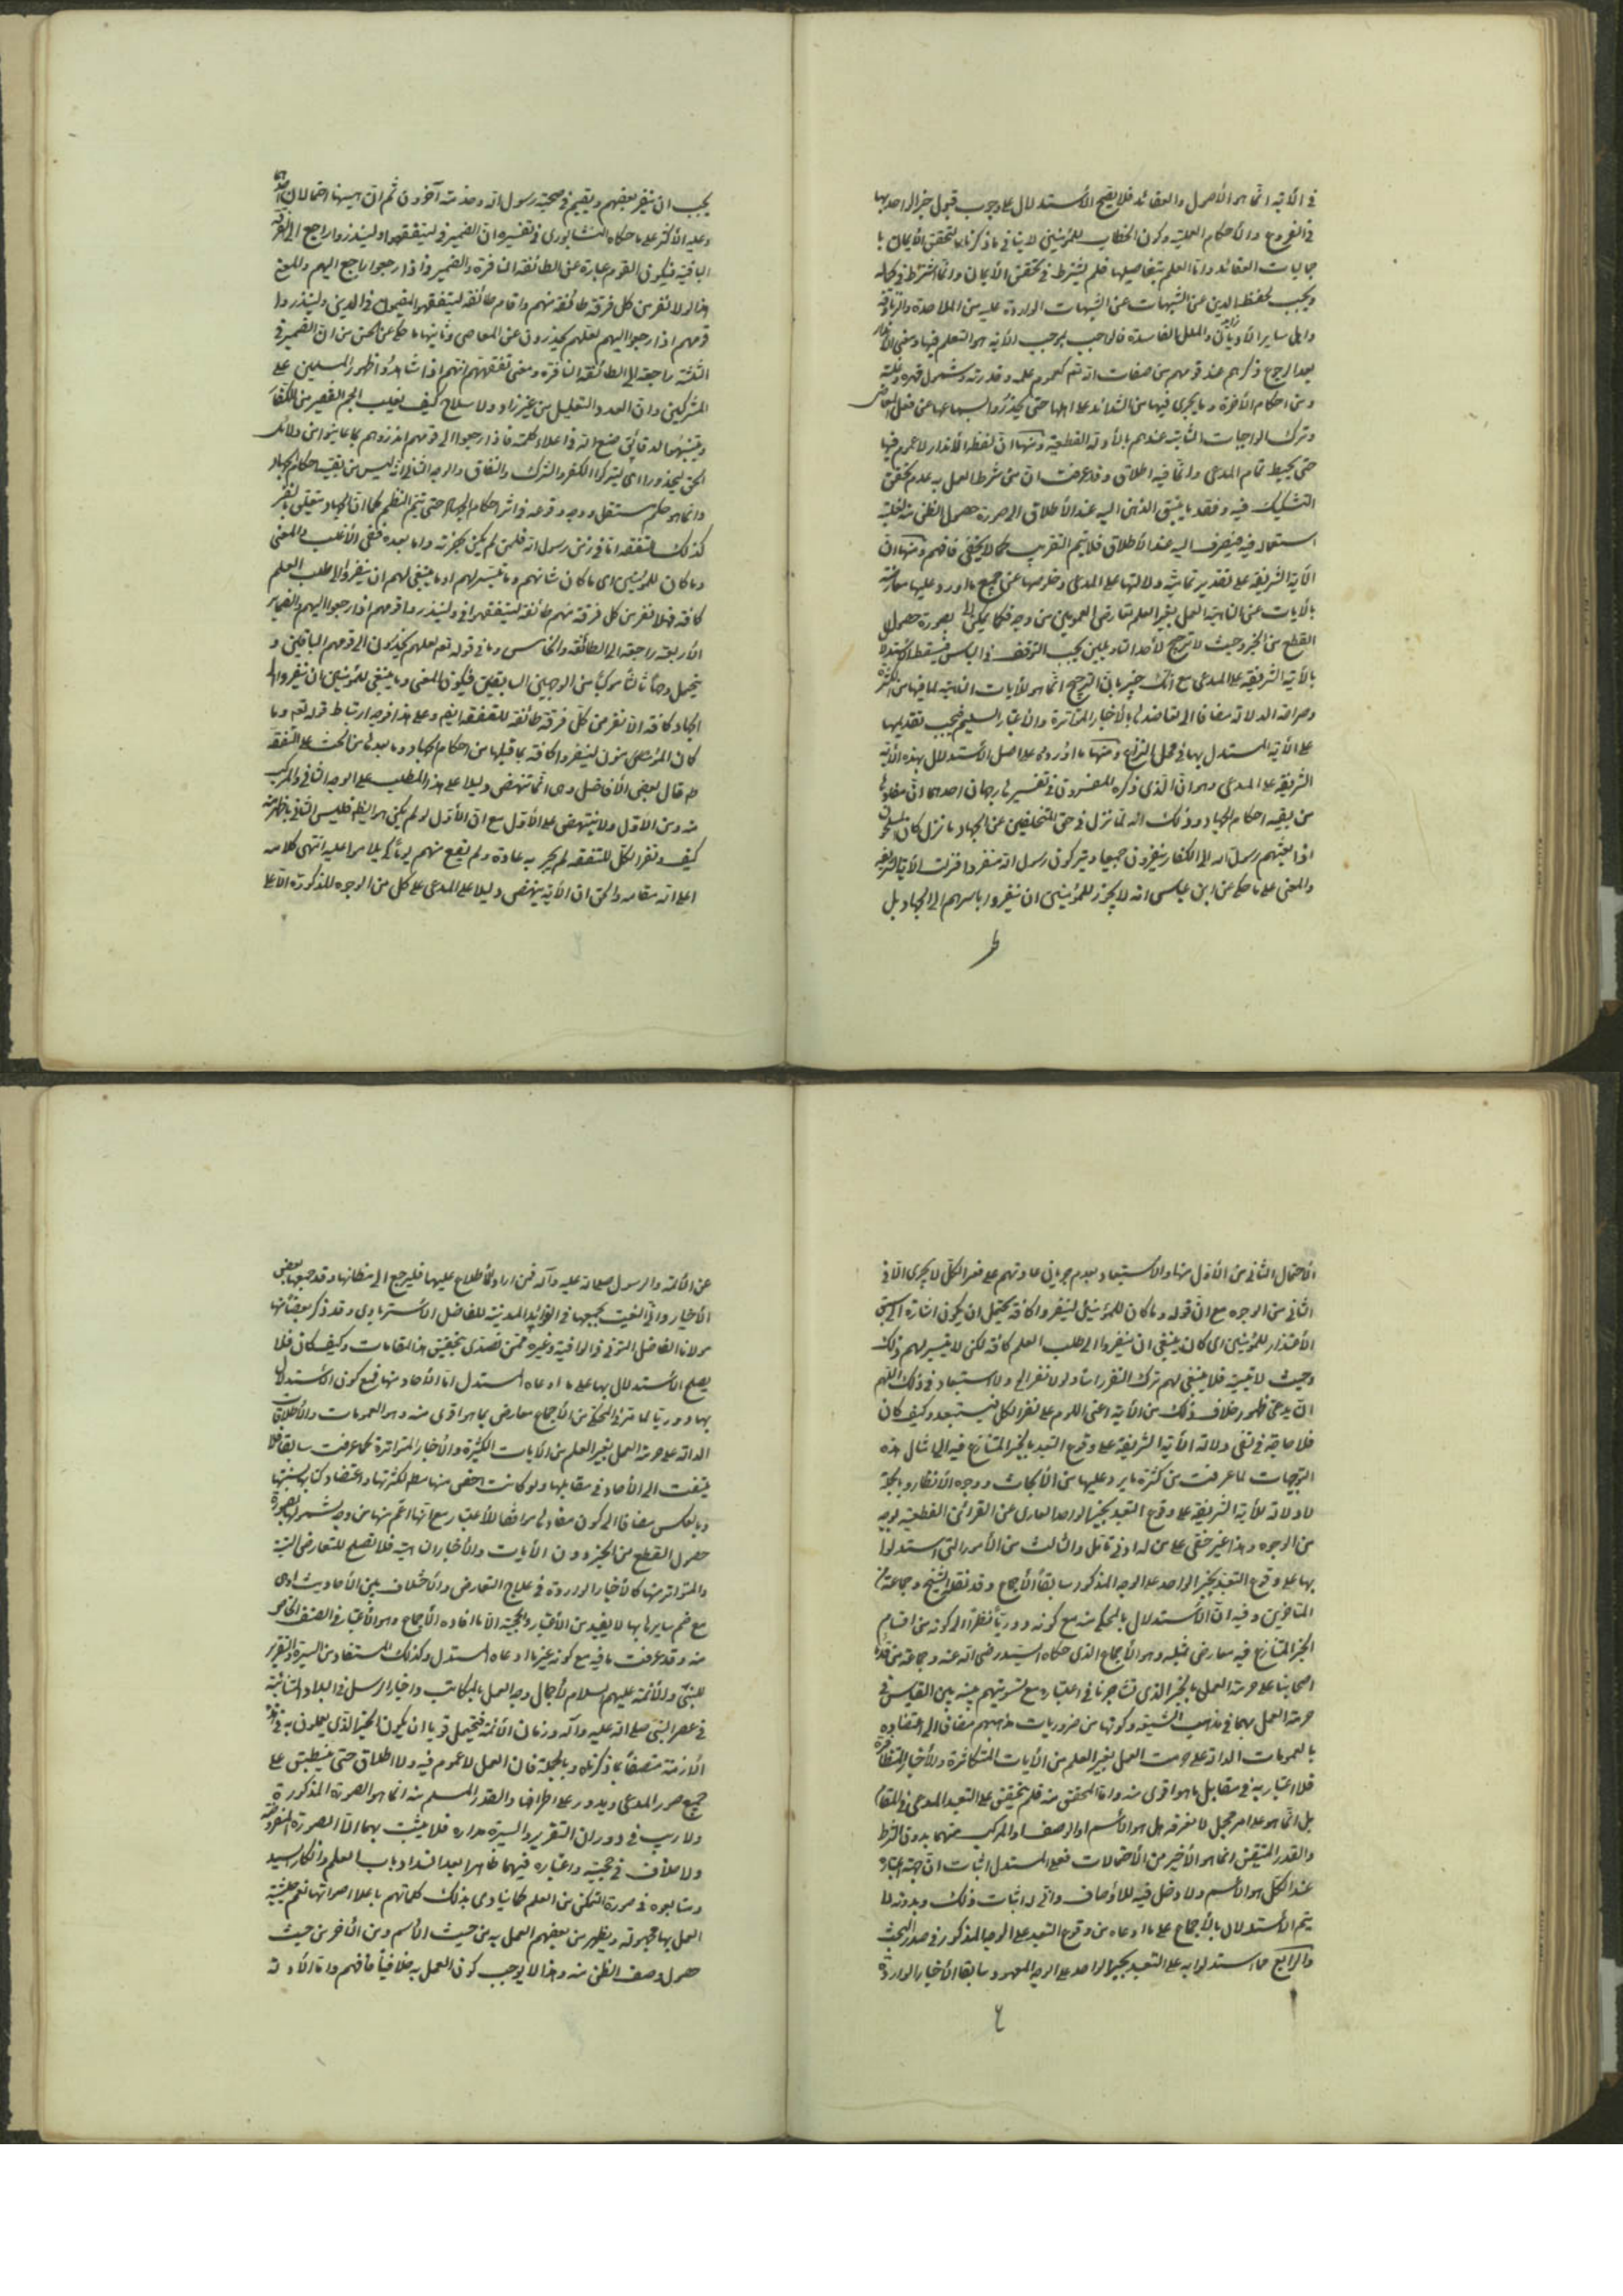 في الآية انما هو الأصول والعقائد فلا يصح الأستدلال على وجوب قبول خبر الواحد بها
في الفروع والأحكام العملية وكون الخطاب للمؤمنين لا ينافي ما ذكرناه لتحقق الأيمان با
جماليات العقائد واما العلم بتفاصيلها فلم يشترط في تحقق الأيمان وانما اشترط في كماله
ويجب لحفظ الدين عن الشبهات الواردة عليه من الملاحدة والزنادقة
واهل ساير الأديان والملل الفاسدة فالواجب بموجب الآية هو التعلم فيها ومعنى الأنذار
بعد الرجوع ذكرهم عند قومهم من صفات الله تعم كعموم علمه وقدرته وشمول قهره وغلبته
ومن احكام الآخرة وما يجري فيها من الشدائد على اهلها حتى يحذروا بسماعها عن فعل المعاصي
وترك الواجبات الثابتة عندهم بالأدلة القطعية ومنها ان لفظ الأنذار لا عموم فيها
حتى يحيط تمام المدعى وانما فيه اطلاق وقد عرفت ان من شرط العمل به عدم تحقق
التشكيك فيه وفقد ما يسبق الذهن اليه عند الأطلاق الى صورة حصول الظن منه لغلبة
استعماله فيه فينصرف اليه عند الأطلاق فلا يتم التقريب كما لا يخفى فافهم ومنها ان
الآية الشريفة على تقدير تمامية دلالتها على المدعى وخلوصها عن جميع ما اورد عليها معارضة
بالآيات عن الناهية العمل بغير العلم تعارض العمومين من وجه فكما يمكن بصورة حصول
القطع من الخبر وحيث لا ترجيح لأحد التاويلين يجب التوقف في البين فيسقط الأستدلال
بالآية الشريفة على المدعى مع انك خبير بان الترجيح انما هو للآيات الناهية لما فيها من الكثرة
وصراحة الدلالة مضافا الى تعاضدها بالأخبار المتواترة والأعتبار السليم فيجب تقديمها
على الآية المستدل بها في محل النزاع ومنها ما اوردوه على اصل الأستدلال بهذه الآية
الشريفة على المدعى وهو ان الذي ذكره المفسرون في تفسيرها وجهان احدهما ان
من بقية احكام الجهاد وذلك انه لما نزل في حق المتخلفين عن الجهاد ما نزل كان المسلمون
اذا بعثهم رسول الله الى الكفار ينفرون جميعا ويتركون رسول الله منفردا فنزلت الآية الشريفة
والمعنى على ما حكي عن ابن عباس انه لا يجوز للمؤمنين ان ينفروا باسرهم الى الجهاد بل
يجب ان ينفر بعضهم ويقيم في صحبة رسول الله وخدمته آخرون ثم ان هيهنا احتمالان
وعليه الأكثر على ما حكاه النيشابوري في تفسيره ان الضمير في ليتفقهوا ولينذروا راجع الى الفرقة
الباقية فيكون القوم عبارة عن الطائفة النافرة والضمير في اذا رجعوا راجع اليهم والمعنى
فلولا نفر من كل فرقة طائفة منهم واقام طائفة ليتفقهوا المقيمون في الدين ولينذروا
قومهم اذا رجعوا اليهم لعلهم يحذرون عن المعاصي وثانيهما ما حكي عن الحسن من ان الضمير في
الثلثة راجعة الى الطائفة النافرة ومعنى تفقههم انهم اذا شاهدوا ظهور المسلمين على
المشركين وان العدد القليل من غير زاد ولا سلاح كيف يغلب الجم الغفير من الكفار
دقائق صنع الله في اعلاء كلمته فاذا رجعوا الى قومهم انذروهم بما عاينوا من دلائل
الحق ليحذروا اي ليتركوا الكفر والشرك والنفاق والوجه الثاني انه ليس من بقية احكام الجهاد
وانما هو حكم مستقل ووجه وقوعه في اثر احكام الجهاد حتى يتم النظم كما ان الجهاد متعلق بالنفر
كذلك التفقه اما في زمن رسول الله فلمن لم يكن بحضرته واما بعده فعلى الأغلب والمعنى
وما كان للمؤمنين اي ما كان شانهم وما تيسر لهم او ما ينبغي لهم ان ينفروا الى طلب العلم
كافة فهلا نفر من كل فرقة منهم طائفة ليتفقهوا في ولينذروا قومهم اذا رجعوا اليهم والضماير
الأربعة راجعة الى الطائفة والخامس وما في قوله تعم لعلهم يحذرون الى قومهم الباقين و
يحتمل وجها ثالثا مركبا من الوجهين السابقين فيكون المعنى وما ينبغي للمؤمنين ان ينفروا الى
الجهاد كافة الا نفر من كل فرقة طائفة للتفقه ايضا وعلى هذا فوجه ارتباط قوله تعم وما
كان المؤمنون لينفروا كافة بما قبلها من احكام الجهاد وما بعدها من الحث على التفقه
قال بعض الأفاضل وهي انما تنهض دليلا على هذا المطلب على الوجه الثاني والمركب
منه ومن الأول ولا ينتهض على الأول مع ان الأول لو لم يكن هو الظاهر فليس الثاني باظهر منه
كيف ونفر الكل للتفقه لم يجر به عادة ولم يقع منهم يوما لكيلا يلاموا عليه انتهى كلامه
اعلى الله مقامه والحق ان الآية ينهض دليلا على المدعى على كل من الوجوه المذكورة الا على
الأحتمال الثاني من الأول منها والاستبعاد بعدم جريان عادتهم على نفر الكل لا يجري الا في
الثاني من الوجوه مع ان قوله وما كان للمؤمنين لينفروا كافة يحتمل ان يكون اشارة الى سبق
الأعتذار للمؤمنين اي كان ينبغي ان ينفروا الى طلب العلم كافة لكن لا يتيسر لهم ذلك
وحيث لا تيسر فلا ينبغي لهم ترك النفر راسا ولولا نفر الى ولا استبعاد في ذلك اللهم
ان يدعي ظهور خلاف ذلك من الآية اعني اللوم على نفر الكل فيستبعد وكيف كان
فلا حاجة في نفي دلالة الآية الشريفة على وقوع التعبد بالخبر المتنازع فيه الى امثال هذه
التوجيهات لما عرفت من كثرة ما يرد عليها من الأبحاث ووجوه الأنظار وبالجملة
لا دلالة للآية الشريفة على وقوع التعبد بخبر الواحد العاري عن القرائن القطعية بوجه
من الوجوه وهذا غير خفي على من له ادنى تامل والثالث من الأمور التي استدلوا
بها على وقوع التعبد بخبر الواحد على الوجه المذكور سابقا الأجماع وقد نقل الشيخ وجماعة من
المتاخرين وفيه ان الأستدلال بالمحكي منه مع كونه دوريا نظرا الى كونه من اقسام
الخبر المتنازع فيه معارض بمثله وهو الأجماع الذي حكاه السيد رضي الله عنه وجماعة من قدماء
اصحابنا على حرمة العمل بالخبر الذي تشاجرنا في اعتباره مع تسويتهم بينه وبين القياس في
حرمة العمل بهما في مذهب الشيعة وكونها من ضروريات مذهبهم مضافا الى اعتضاده
بالعمومات الدالة على حرمت العمل بغير العلم من الآيات المتكاثرة والأخبار المتظافرة
فلا اعتبار به في مقابل ما هو اقوى منه واما المحقق منه فلم يتحقق على التعبد المدعى في المقام
بل انما هو على امر مجمل لا نعرفه هل هو الأسم او الوصف او المركب منهما بدون الشرط
والقدر المتيقن انما هو الأخير من الأحتمالات فعلى المستدل اثبات ان جهة اعتباره
عند الكل هو الأسم ولا دخل فيه للأوصاف واني له اثبات ذلك وبدونه لا
يتم الأستدلال بالأجماع على ما ادعاه من وقوع التعبد على الوجه المذكور في صدر البحث
والرابع ما استدلوا به على التعبد بخبر الواحد على الوجه المعهود سابقا الأخبار الواردة
عن الأئمة والرسول صلى الله عليه وآله فمن اراد الأطلاع عليها فليرجع الى مظانها وقد جمعها بعض
الأخباريين في الفوائد المدنية للفاضل الأسترابادي وقد ذكر بعضا منها
مولانا الفاضل التوني في الوافية وغيره ممن تصدى بتحقيق هذا المقامات وكيف كان فلا
يصلح الأستدلال بها على ما ادعاه المستدل اما الآحاد منها فمع كون الأستدلال
بها دوريا لما مر في المحكي من الأجماع معارض بما هو اقوى منه وهو العمومات والأطلاقات
الدالة على حرمة العمل بغير العلم من الآيات الكثيرة والأخبار المتواترة كما عرفت سابقا فلا
يلتفت الى الآحاد في مقابلها ولو كانت اخص منها مط لكثرتها واعتضاد كتابها بسنتها
وبالعكس مضافا الى كون مفادها موافقا للأعتبار مع انها اعم منها من وجه لشمولها بصورة
حصول القطع من الخبر دون الآيات والأخبار الناهية فلا تصلح للتعارض البتة
والمتواتر منها كالأخبار الواردة في علاج التعارض والأختلاف بين الأحاديث المروية
مع ضم سايرها بها لا يفيد من الأعتبار والحجية الا ما افاده الأجماع وهو الأعتبار في الصنف الخاص
منه وقد عرفت ما فيه مع كونه غير ما ادعاه المستدل وكذلك المستفاد من السيرة والتقرير
للنبي والأئمة عليهم السلام لأجمال وجه العمل بالمكاتب واخبار الرسل في البلاد المتنائية
في عصر النبي صلى الله عليه وآله وزمان الأئمة فيحتمل قويا ان يكون الخبر الذي يعملون به في تلك
الأزمنة متصفا بما ذكرناه وبالجملة فان العمل لا عموم فيه ولا اطلاق حتى ينطبق على
جميع صور المدعى ويدور على اطرافها والقدر المسلم منه انما هو الصورة المذكورة
ولا ريب في دوران التقرير والسيرة مداره فلا يثبت بهما الا الصورة المفروضة
ولا خلاف في حجيته واعتباره فيهما ظاهرا بعد انسداد باب العلم وانكار السيد
ومتابعوه في صورة التمكن من العلم كما ينادي بذلك كلماتهم باعلا اصواتها نعم حيثية
العمل بها مجهولة ويظهر من بعضهم العمل به من حيث الأسم ومن الآخر من حيث
حصول وصف الظن منه وهذا لا يوجب كون العمل به خلافيا فافهم واما الأدلة